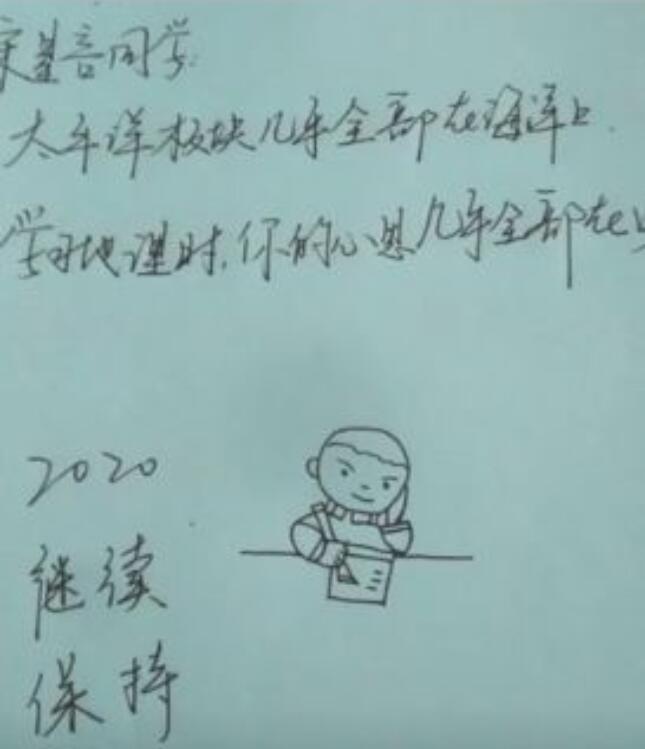 宋基言同学:
太平洋板块几乎全部在海洋上.
学习地理时,你的心思几乎全部在
2020
继续
保持